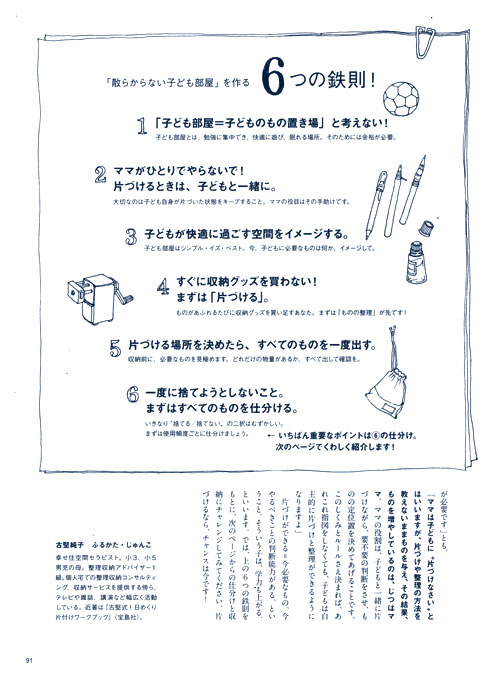 「散らからない子ども部屋」を作る 6つの鉄則！
1 「子ども部屋＝子どものもの置き場」と考えない！
子ども部屋とは、勉強に集中でき、快適に遊び、眠れる場所。そのためには余裕が必要。
2 ママがひとりでやらないで！
片づけるときは、子どもと一緒に。
大切なのは子ども自身が片づいた状態をキープすること。ママの役目はその手助けです。
3 子どもが快適に過ごす空間をイメージする。
子ども部屋はシンプル・イズ・ベスト。今、子どもに必要なものは何か、イメージして。
4 すぐに収納グッズを買わない！
まずは「片づける」。
ものがあふれるたびに収納グッズを買い足すあなた。まずは「ものの整理」が先です！
5 片づける場所を決めたら、すべてのものを一度出す。
収納前に、必要なものを見極めます。どれだけの物量があるか、すべて出して確認を。
6 一度に捨てようとしないこと。
まずはすべてのものを仕分ける。
いきなり“捨てる／捨てない”の二択はむずかしい。
まずは使用頻度ごとに仕分けましょう。
← いちばん重要なポイントは⑥の仕分け。
次のページでくわしく紹介します！
が必要です」とも。
「ママは子どもに〝片づけなさい〟と
はいいますが、片づけや整理の方法を
教えないままものを与え、その結果、
ものを増やしているのは、じつはマ
マ。ママの役割は、子どもと一緒に片
づけながら、要不要の判断をさせ、も
のの定位置を決めてあげることです。
このしくみとルールさえ決まれば、あ
れこれ指図をしなくても、子どもは自
主的に片づけと整理ができるように
なりますよ」
片づけができる＝今必要なもの、今
やるべきことの判断能力がある、とい
うこと。そういう子は、学力も上がる、
といいます。では、上の６つの鉄則を
もとに、次のページからの仕分けと収
納にチャレンジしてみてください。片
づけるなら、チャンスは今です！
古堅純子 ふるかた・じゅんこ
幸せ住空間セラピスト。小3、小5
男児の母。整理収納アドバイザー1
級。個人宅での整理収納コンサルティ
ング、収納サービスを提供する傍ら、
テレビや雑誌、講演など幅広く活動
している。近著は『古堅式！日めくり
片付けワークブック』（宝島社）。
91